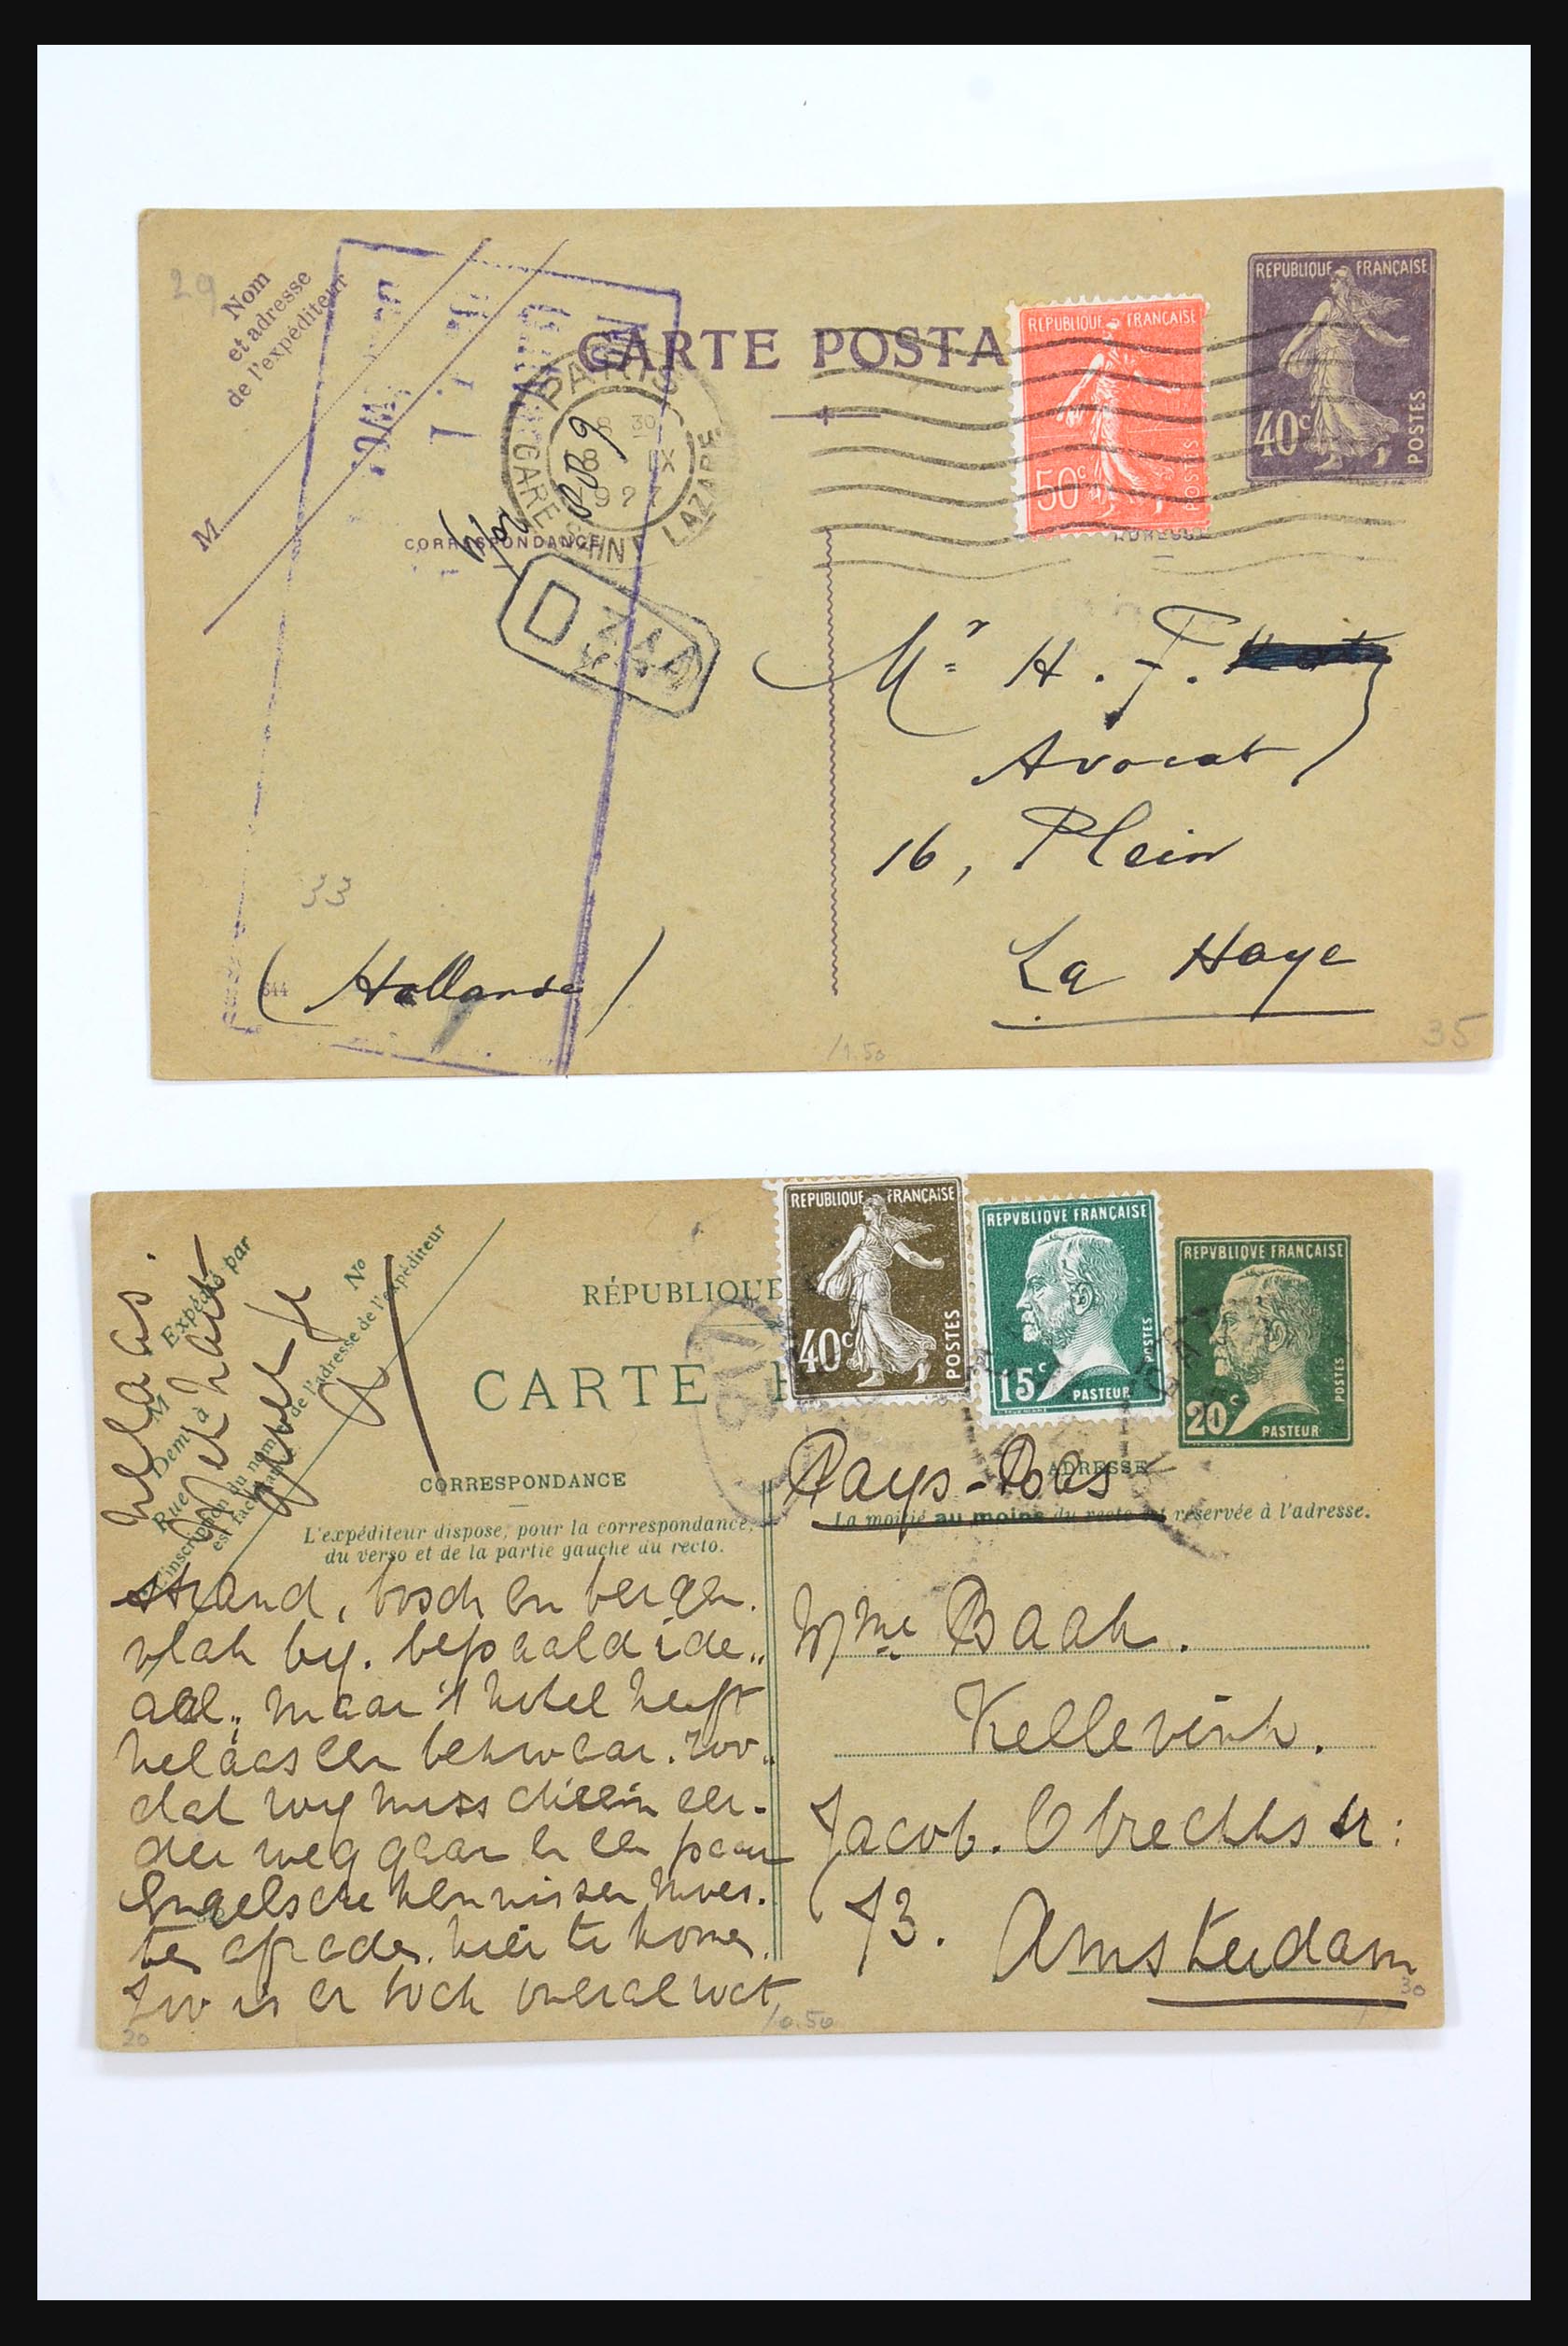 29
Nom
et adresse
de l'expéditeur
M
CARTE POSTA
REPUBLIQUE FRANÇAISE
50c
POSTES
REPUBLIQUE FRANÇAISE
40c
POSTES
PARIS
GARE ST LAZARE
8 30
8 IX
CORRESPONDANCE
ADRESSE
D
Mr H. F.
Avocat
16, Plein
La Haye
33
544
(Hollande)
/1.50
35
Expédié par
M
Demt à
Rue
No
L'inscription du nom et de l'adresse de l'expéditeur
est facultative.
helaas.
RÉPUBLIQUE
CARTE P
REPUBLIQUE FRANÇAISE
40c
POSTES
REPVBLIQVE FRANÇAISE
15c
PASTEUR
POSTES
REPVBLIQVE FRANÇAISE
20c
PASTEUR
POSTES
CORRESPONDANCE
L'expéditeur dispose, pour la correspondance,
du verso et de la partie gauche du recto.
ADRESSE
Pays-Bas
La moitié au moins du recto est réservée à l'adresse.
strand, bosch en bergen
vlak bij. bepaald ide„
aal„ maar 't hotel heeft
helaas een bezwaar. zoo„
dat wij misschien eer-
der weg gaan en een paar
Engelsche kennissen moes.
ten afraden hier te komen.
Zoo is er toch overal wat
Mme Baak.
Kellevink.
Jacob. Obrechts str:
73. Amsterdam
20
/0.50
30